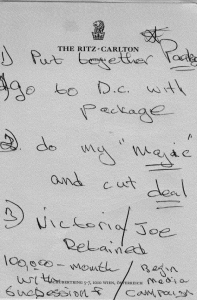 THE RITZ-CARLTON
1) Put together Package
2) go to D.C. with
package
2. do my "magic"
and cut deal
3) Victoria/Joe
Retained
100,000-month / Begin
with / media
success fee / campaign